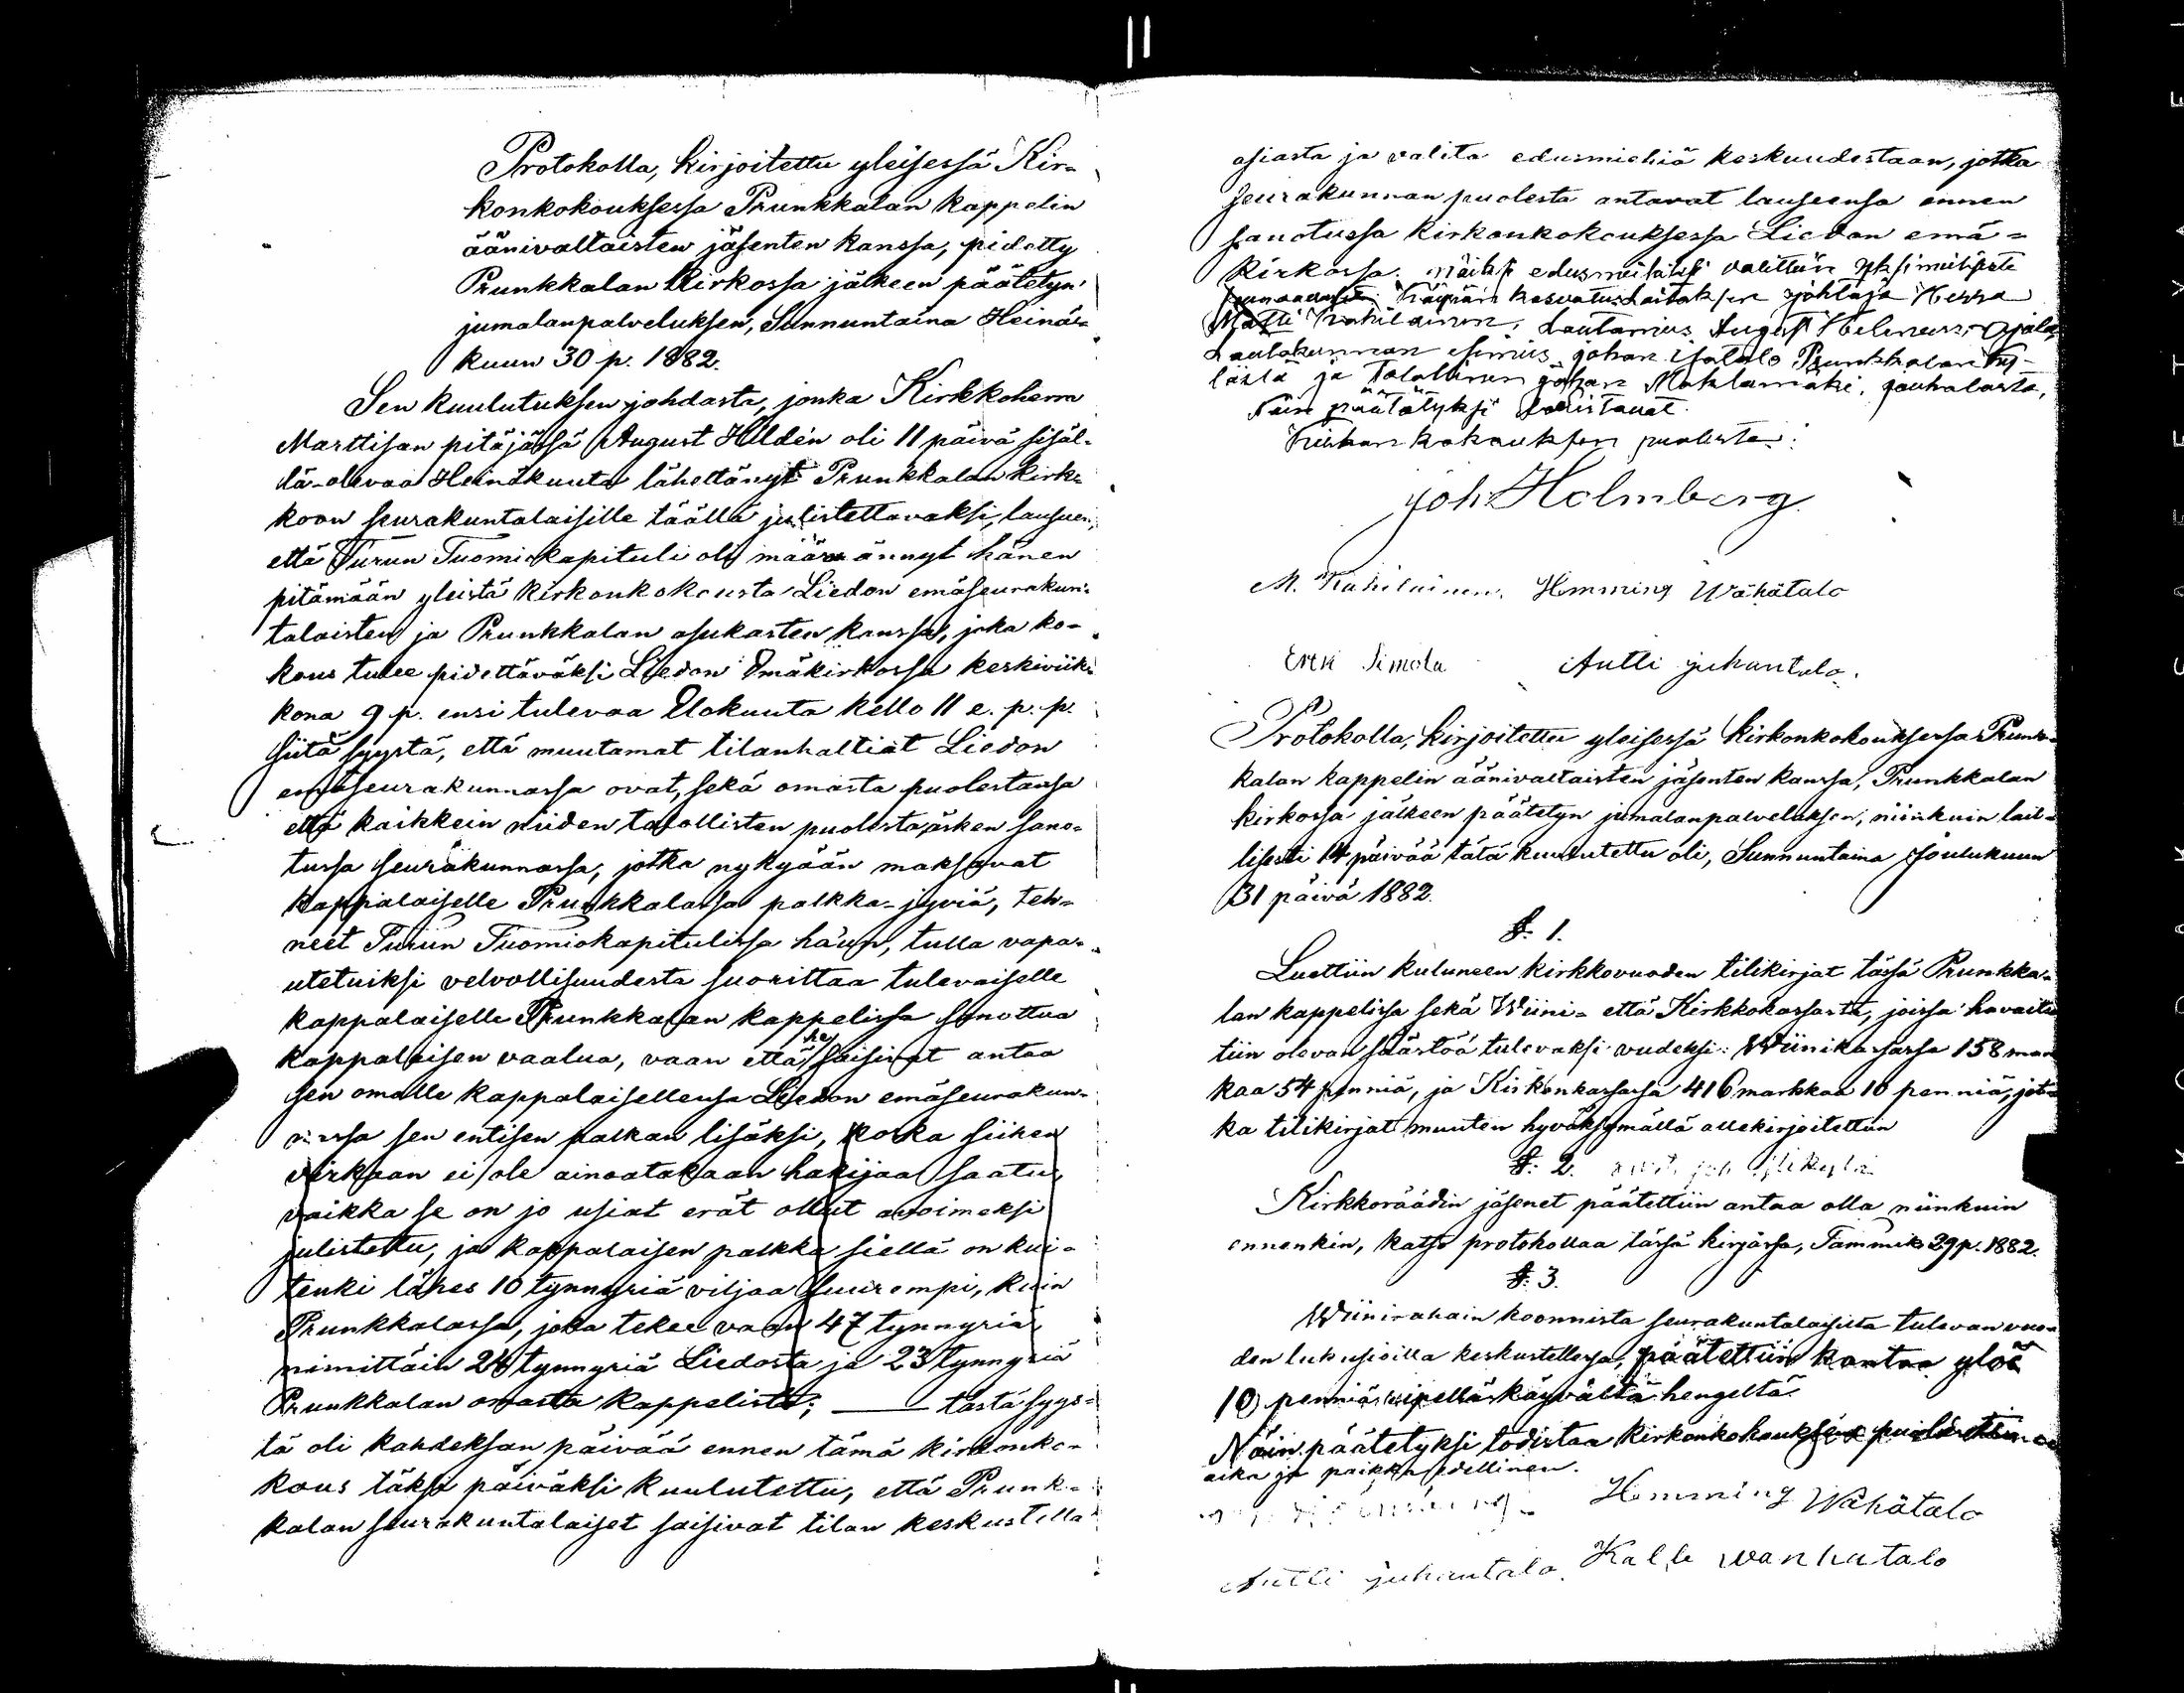 Protokolla, kirjoitettu yleisessä Kir=
konkokouksessa Prunkkalan kappelin
äänivaltaisten jäsenten kanssa, pidetty
Prunkkalan Kirkossa jälkeen päätetyn
jumalanpalveluksen, Sunnuntaina Heinä=
kuun 30 p. 1882.
Sen kuulutuksen johdasta, jonka Kirkkoherra
Marttisan pitäjässä August Heldén oli 11 päivä sisäl=
lä-olevaa Heinäkuuta lähettänyt Prunkkalan kirk=
koon seurakuntalaisille täällä julistettavaksi, lausuen,
että Turun Tuomiokapituli oli määrännyt hänen
pitämään yleistä kirkonkokousta Liedon emäseurakun=
talaisten ja Prunkkalan asukasten kanssa, joka ko=
kous tulee pidettäväksi Liedon Emäkirkossa keskiviik=
kona 9 p. ensi tulevaa Elokuuta kello 11 e. p. p.
Siitä syystä, että muutamat tilanhaltiat Liedon
emäseurakunnassa ovat, sekä omasta puolestansa
että kaikkein niiden talollisten puolesta äsken sano=
tussa seurakunnassa, jotka nykyään maksavat
kappalaiselle Prunkkalassa palkka-jyviä, teh=
neet Turun Tuomiokapitulissa ha'un, tulla vapa=
utetuiksi velvollisuudesta suorittaa tulevaiselle
kappalaiselle Prunkkalan kappelissa sanottua
kappalaisen vaalua, vaan että he saisivat antaa
sen omalle kappalaisellensa Liedon emäseurakun=
nassa sen entisen palkan lisäksi, koska siihen
virkaan ei ole ainoatakaan hakijaa saatu,
vaikka se on jo usiat erät ollut avoimeksi
julistettu, ja kappalaisen palkka siellä on kui=
tenki lähes 10 tynnyriä viljaa suurempi, kuin
Prunkkalassa, joka tekee vaan 47 tynnyriä
nimittäin 24 tynnyriä Liedosta ja 23 tynnyriä
Prunkkalan omasta kappelista; — tästä syys=
tä oli kahdeksan päivää ennen tämä kirkonko=
kous täksi päiväksi kuulutettu, että Prunk=
kalan seurakuntalaiset saisivat tilan keskustella
asiasta ja valita edusmiehiä keskuudestaan, jotka
seurakunnan puolesta antavat lauseensa ennen
sanotussa kirkonkokouksessa Liedon emä=
kirkossa. Näiksi edusmiehiksi valittiin yksimielisesti
kasvatuslaitoksen johtaja Herra
Matti Kahilainen, Lautamies August Helenius
Lautakunnan esimies Johan Isotalo Prunkkalan ky=
lästä ja Talollinen Johan Mahlamäki,
Näin päätätyksi todistavat.
Kirkon kokouksen puolesta:
Joh. Holmberg.
M. Kahilainen. Hemming Wähätalo
Erik Simola Antti Juhantalo.
Protokolla, kirjoitettu yleisessä kirkonkokouksessa Prunk=
kalan kappelin äänivaltaisten jäsenten kanssa, Prunkkalan
kirkossa jälkeen päätetyn jumalanpalveluksen, niinkuin lail=
lisesti 14 päivää tätä kuulutettu oli, Sunnuntaina Joulukuun
31 päivä 1882.
§. 1.
Luettiin kuluneen kirkkovuoden tilikirjat tässä Prunkka=
lan kappelissa sekä Wiini= että Kirkkokassasta, joissa havait
tiin olevan säästöä tulevaksi vuodeksi: Wiinikassassa 158 mar
kaa 54 penniä, ja Kirkonkassassa 416 markkaa 10 penniä, jot=
ka tilikirjat muuten hyväksymällä allekirjoitettiin
§. 2.
Kirkkoräädin jäsenet päätettiin antaa olla niinkuin
ennenkin, katso protokollaa tässä kirjassa, Tammik. 29 p. 1882.
§. 3.
Wiinirahain koonnista seurakuntalaisilta tulevan vuo=
den lukusioilla keskustellessa, päätettiin kantaa ylös
10 penniä ripelläkäyvältä hengeltä.
Näin päätetyksi todistaa kirkonkokouksen puolesta
aika ja paikka edellinen.
Hemming Wähätalo
Antti Juhantalo. Kalle Wanhatalo